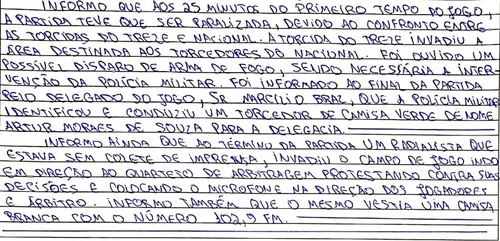 INFORMO QUE AOS 25 MINUTOS DO PRIMEIRO TEMPO DO JOGO,
A PARTIDA TEVE QUE SER PARALIZADA, DEVIDO AO CONFRONTO ENTRE
AS TORCIDAS DO TREZE E NACIONAL. A TORCIDA DO TREZE INVADIU A
ÁREA DESTINADA AOS TORCEDORES DO NACIONAL. FOI OUVIDO UM
POSSÍVEL DISPARO DE ARMA DE FOGO, SENDO NECESSÁRIA A INTER
VENÇÃO DA POLÍCIA MILITAR. FOI INFORMADO AO FINAL DA PARTIDA
PELO DELEGADO DO JOGO, SR MARCILIO BRAZ, QUE A POLÍCIA MILITAR
IDENTIFICOU E CONDUZIU UM TORCEDOR DE CAMISA VERDE DE NOME
ARTUR MORAES DE SOUZA PARA A DELEGACIA.
INFORMO AINDA QUE AO TÉRMINO DA PARTIDA UM RADIALISTA QUE
ESTAVA SEM COLETE DE IMPRENSA, INVADIU O CAMPO DE JOGO INDO
EM DIREÇÃO AO QUARTETO DE ARBITRAGEM PROTESTANDO CONTRA SUAS
DECISÕES E COLOCANDO O MICROFONE NA DIREÇÃO DOS JOGADORES
E ÁRBITRO. INFORMO TAMBÉM QUE O MESMO VESTIA UMA CAMISA
BRANCA COM O NÚMERO 102,9 FM.